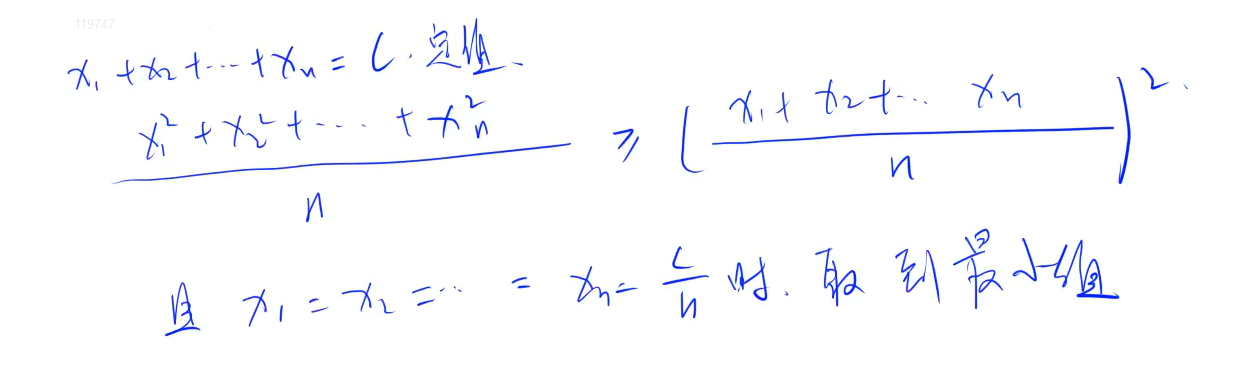 119747
x₁ + x₂ + ⋯ + xₙ = C. 定值.
(x₁² + x₂² + ⋯ + xₙ²) / n ≥ ((x₁ + x₂ + ⋯ xₙ) / n)².
且 x₁ = x₂ = ⋯ = xₙ = C/n 时. 取到最小值